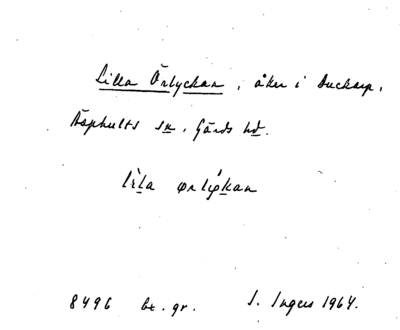 Lilla Örlyckan, åker i Duckarp,
Äsphults sn, Gärds hd.
lìla ørlykan
8496 be. gr. I. Ingers 1964.